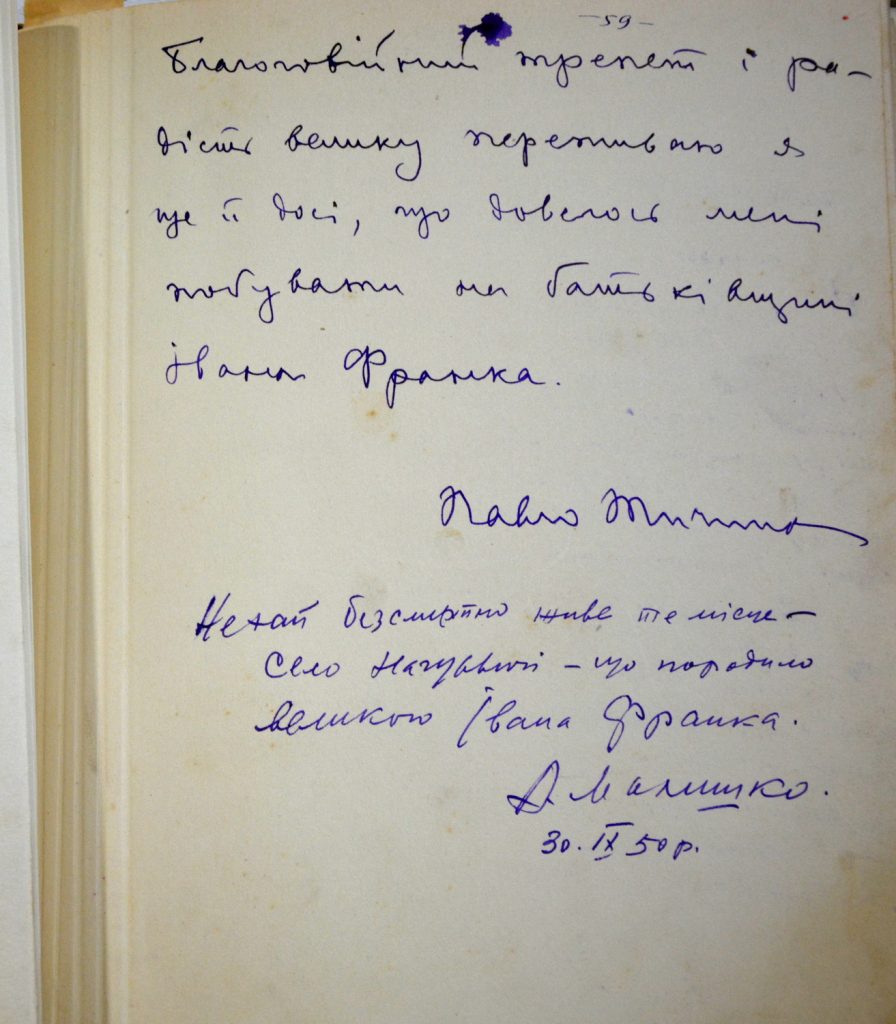 -59-
Благоговійний трепет і ра-
дість велику переживаю я
ще її досі, що довелось мені
побувати на батьківщині
Івана Франка.
Павло Тичина
Нехай безсмертно живе те місце –
Село Нагуєвичі – що породило
великого Івана Франка.
А. Малишко.
30.IX 50 р.